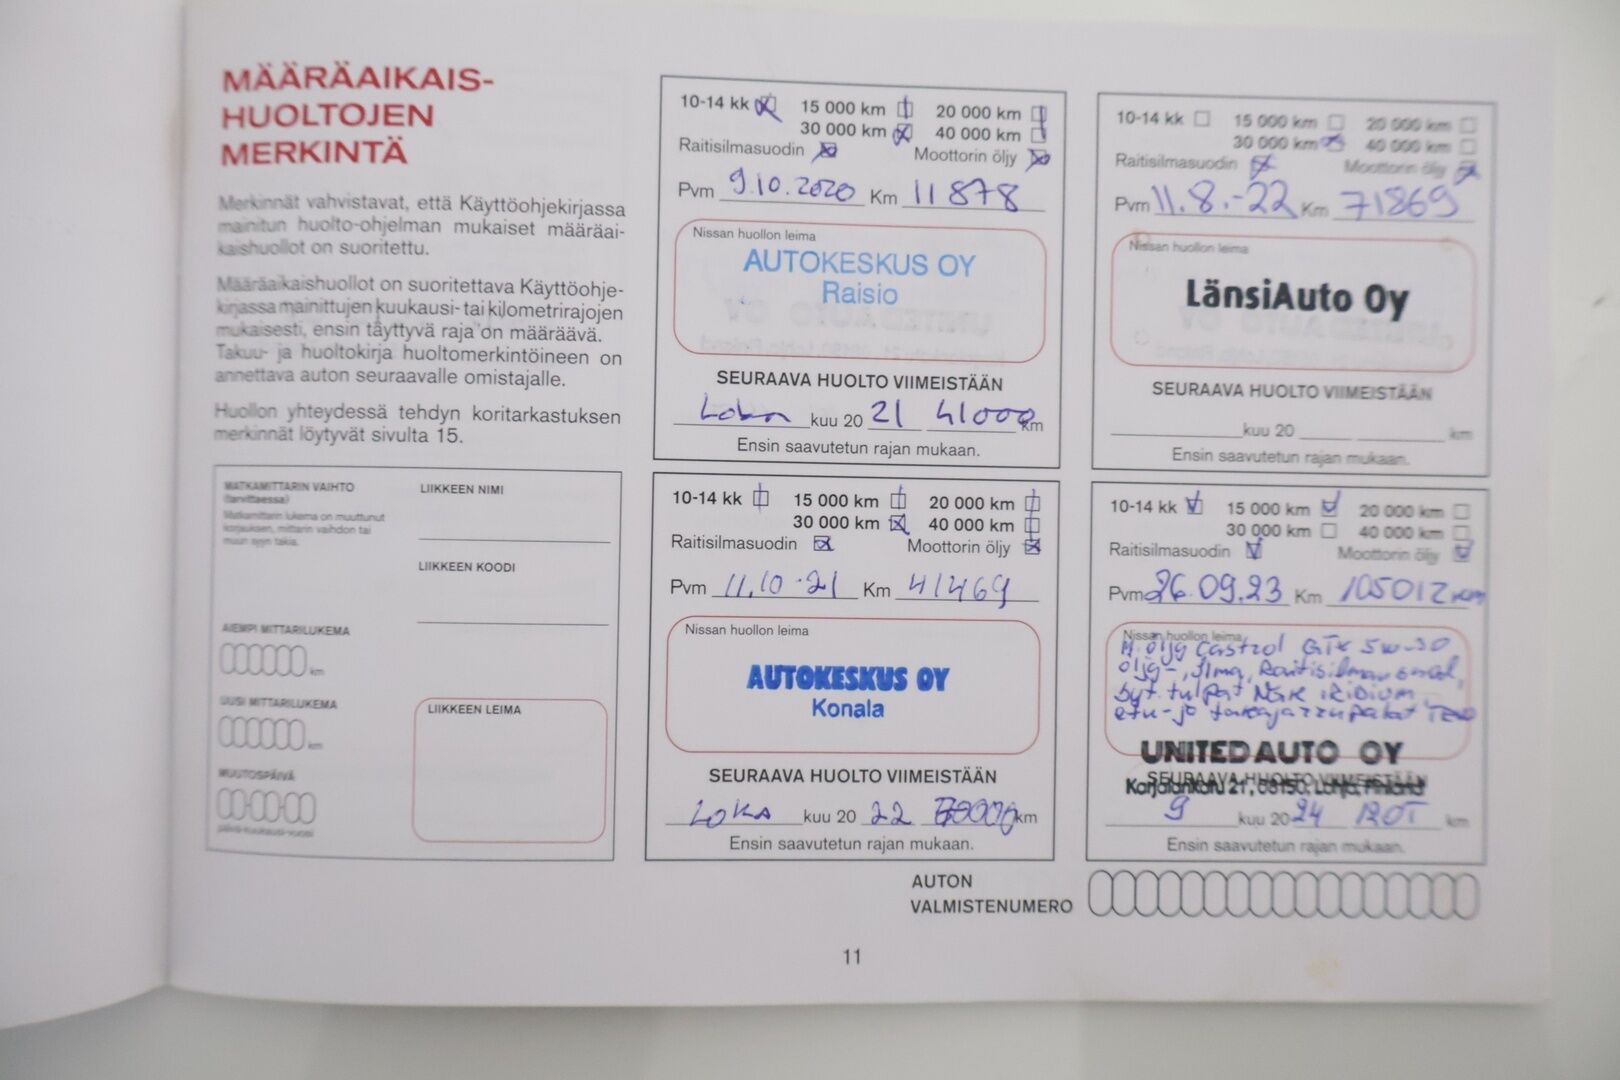 MÄÄRÄAIKAIS-
HUOLTOJEN
MERKINTÄ
Merkinnät vahvistavat, että Käyttöohjekirjassa
mainitun huolto-ohjelman mukaiset määräai-
kaishuollot on suoritettu.
Määräaikaishuollot on suoritettava Käyttöohje-
kirjassa mainittujen kuukausi- tai kilometrirajojen
mukaisesti, ensin täyttyvä raja on määräävä.
Takuu- ja huoltokirja huoltomerkintöineen on
annettava auton seuraavalle omistajalle.
Huollon yhteydessä tehdyn koritarkastuksen
merkinnät löytyvät sivulta 15.
MATKAMITTARIN VAIHTO
(tarvittaessa)
Matkamittarin lukema on muuttunut
korjauksen, mittarin vaihdon tai
muun syyn takia.
AIEMPI MITTARILUKEMA
km
UUSI MITTARILUKEMA
km
MUUTOSPÄIVÄ
päivä-kuukausi-vuosi
LIIKKEEN NIMI
LIIKKEEN KOODI
LIIKKEEN LEIMA
10-14 kk 15 000 km 20 000 km
30 000 km 40 000 km
Raitisilmasuodin Moottorin öljy
Pvm 9.10.2020 Km 11878
Nissan huollon leima
AUTOKESKUS OY
Raisio
SEURAAVA HUOLTO VIIMEISTÄÄN
Loka kuu 20 21 41000 km
Ensin saavutetun rajan mukaan.
10-14 kk 15 000 km 20 000 km
30 000 km 40 000 km
Raitisilmasuodin Moottorin öljy
Pvm 11.10.21 Km 41469
Nissan huollon leima
AUTOKESKUS OY
Konala
SEURAAVA HUOLTO VIIMEISTÄÄN
Loka kuu 20 22 km
Ensin saavutetun rajan mukaan.
10-14 kk 15 000 km 20 000 km
30 000 km 40 000 km
Raitisilmasuodin Moottorin öljy
Pvm 11.8.-22 Km 71869
Nissan huollon leima
LänsiAuto Oy
SEURAAVA HUOLTO VIIMEISTÄÄN
kuu 20 km
Ensin saavutetun rajan mukaan.
10-14 kk 15 000 km 20 000 km
30 000 km 40 000 km
Raitisilmasuodin Moottorin öljy
Pvm 26.09.23 Km 105012 km
Nissan huollon leima
M.öljy Castrol GTX 5W-30
öljy-, ilma, Raitisilmansuod,
syt.tulpat NGK iRiDiUM
etu-ja
UNITED AUTO OY
SEURAAVA HUOLTO VIIMEISTÄÄN
Karjalankatu 21, 08150, Lohja, Finland
9 kuu 20 24 120T km
Ensin saavutetun rajan mukaan.
AUTON
VALMISTENUMERO
11